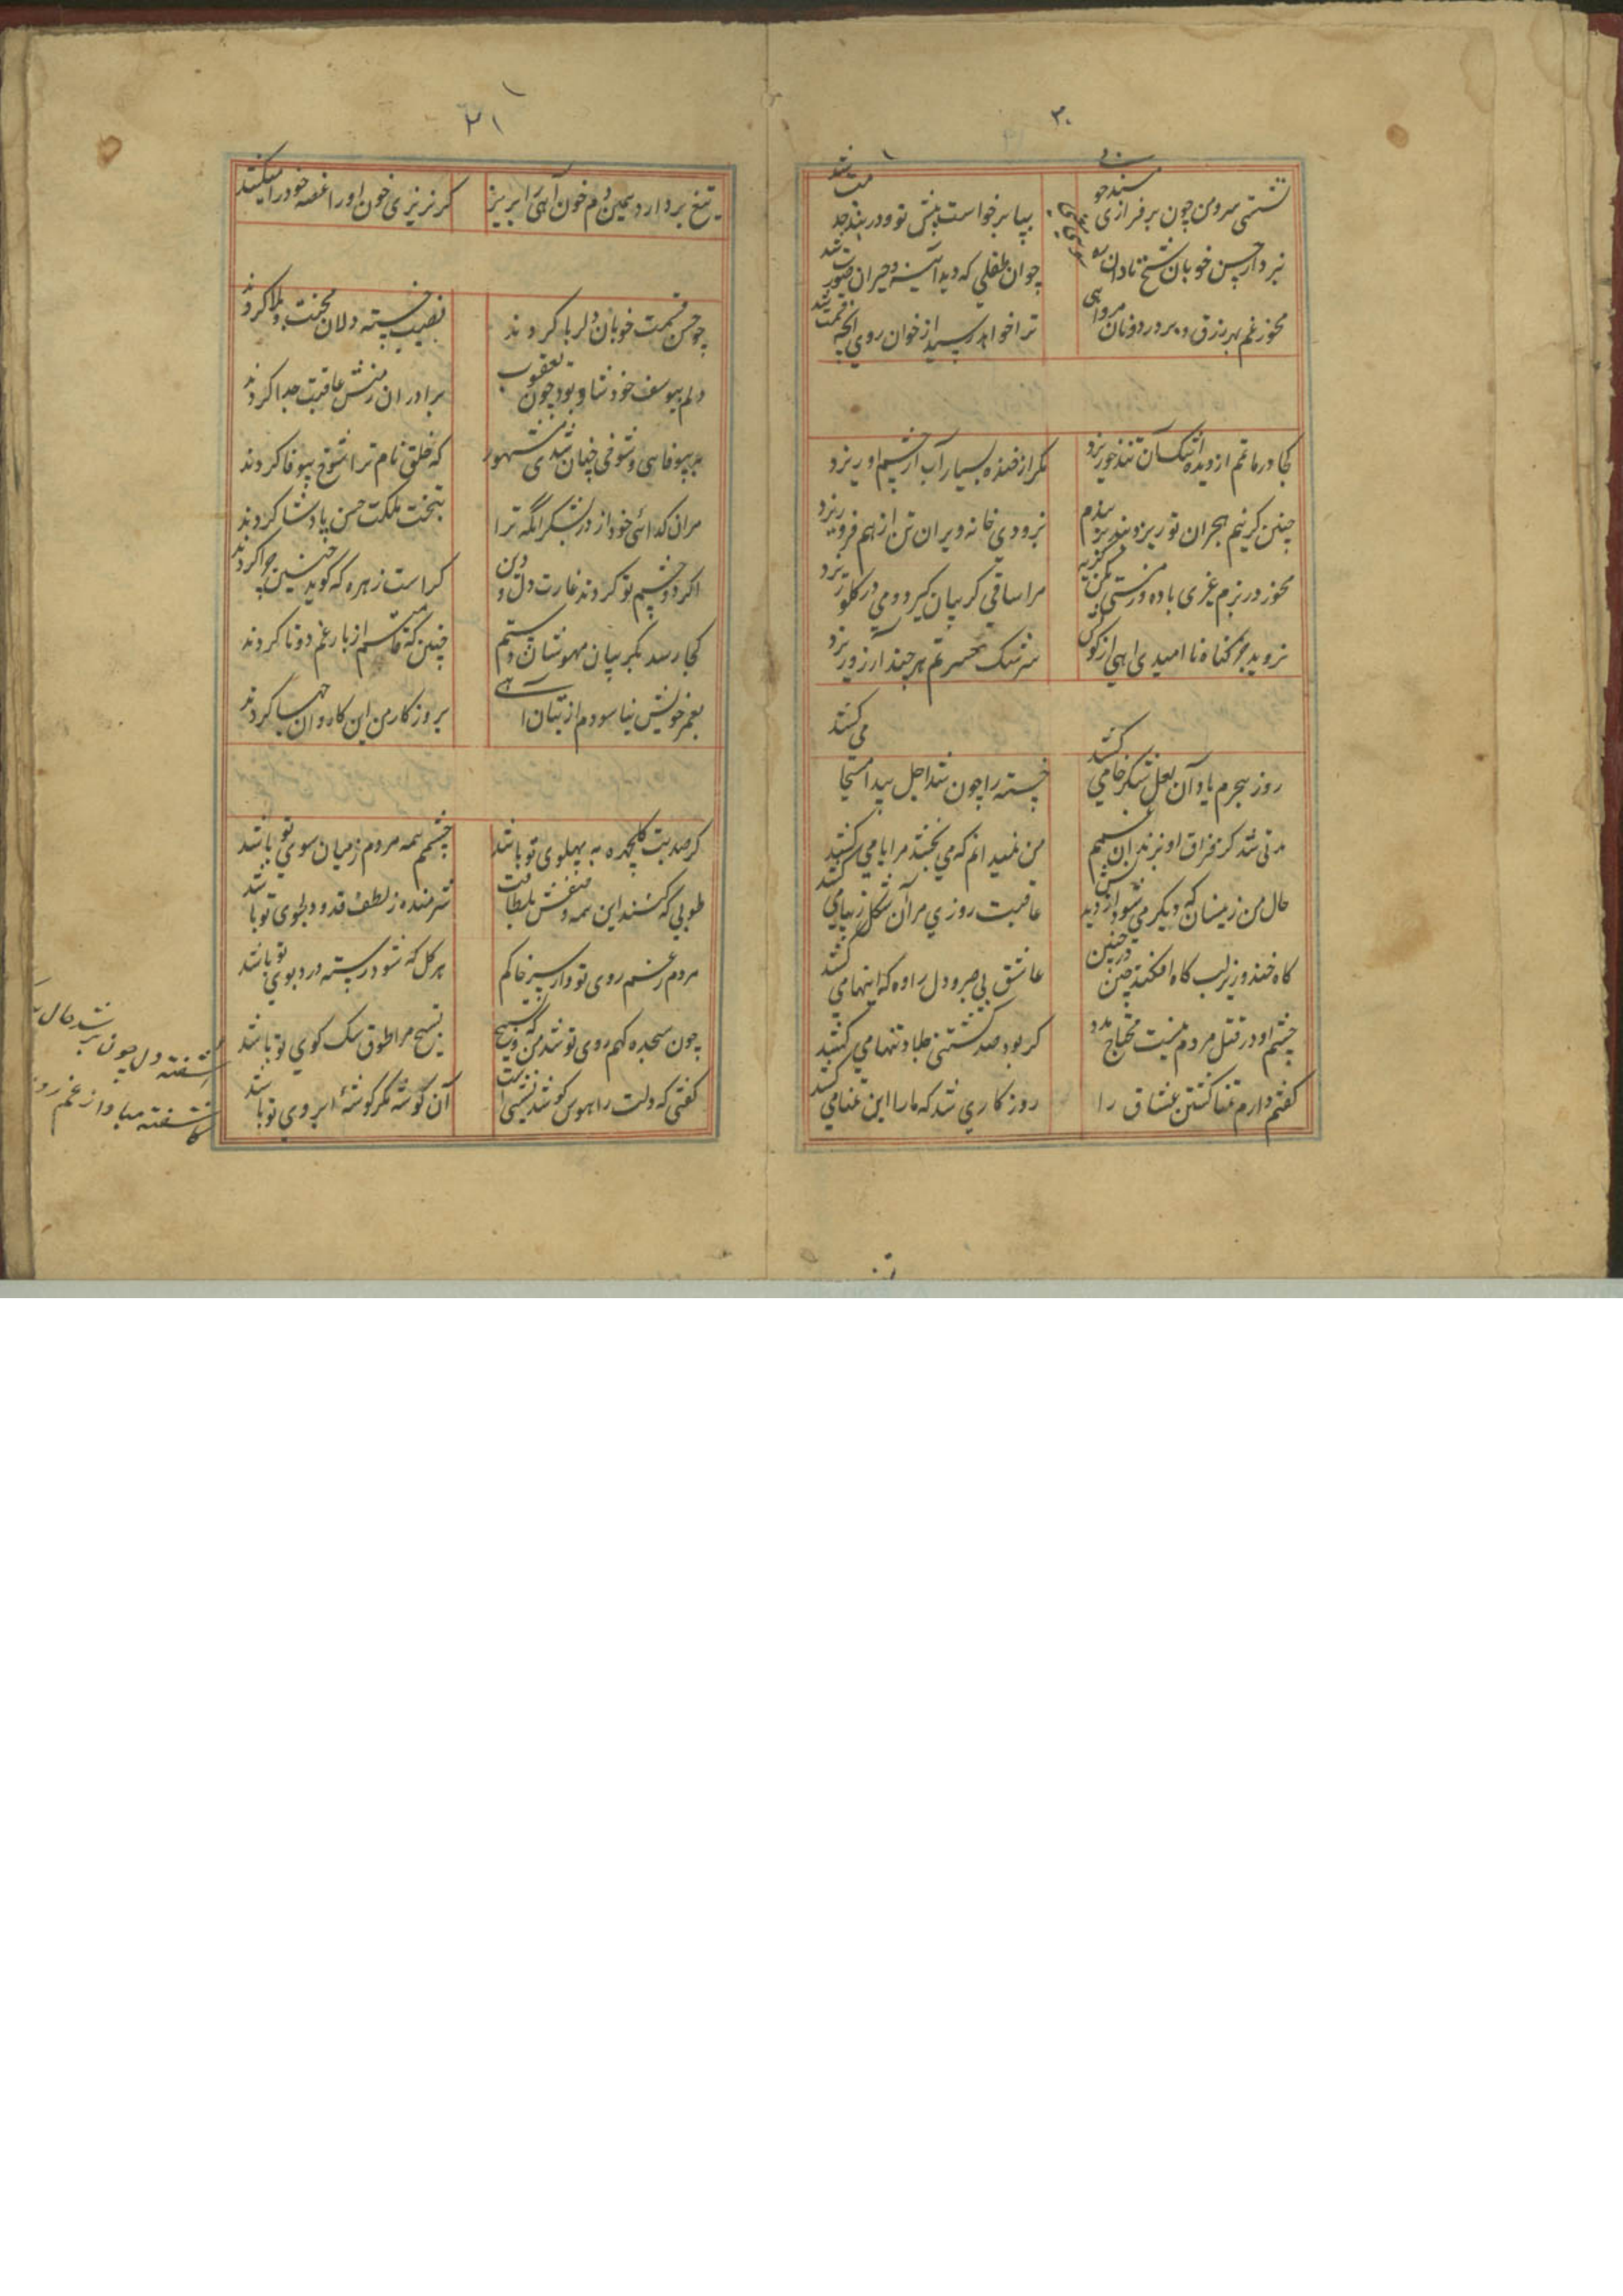 ۳۰
نشستی سرو من چون بر فرازی مسند خوبی
بپا برخواست پیش تو و در بند خدمت شد
نبرد از حسن خوبان شیخ نادان
چو آن طفلی که دید آیینه و حیران صورت شد
مخور غم بهر رزق و بر در دونان مرو آهی
ترا خواهد رسید از خوان روزی آنچه قسمت شد
کجا در ماتم از دیده اشک آن تندخو ریزد
مگر از خنده بسیار آب از چشم او ریزد
چنین کز نیم هجران تو ریزد بند بندم
بزودی خانه ویران تن از هم فرو ریزد
مخور در بزم غیری باده و مستی مکن
مرا ساقی گریبان گیرد و می در گلو ریزد
نروید جز گناه نا امیدی آهی از
سرشک حسرتم هر چند آرزو ریزد
روز هجرم یاد آن لعل شکرخا می کشد
خسته را چون شد اجل پیدا مسیحا می کشد
مدتی شد کز فراق او نزند آن
من نمیدانم که می بخشد مرا یا می کشد
حال من زینسان که دیگر می شود از دیدنش
عاقبت روزی مرا آن شکل زیبا می کشد
گاه خندد زیر لب گاه افکند چین در جبین
عاشق بی صبر و دل را وه که اینها می کشد
چشم او در قتل مردم نیست محتاج مدد
گر بود صد کشتنی جلاد تنها می کشد
گفتم دارم تمنا کشتن عشاق را
روزگاری شد که ما را این تمنا می کشد
۳۱
تیغ بردار و همین دم خون آهی را بریز
گر نریزی خون او را غصه خود را میکشد
چو حسن قسمت خوبان دلربا کردند
نصیب خسته دلان محنت و بلا کردند
دلم بیوسف خود شاد بود چون یعقوب
برادران ز منش عاقبت جدا کردند
به بیوفایی و شوخی چنان شدی مشهور
که خلق نام ترا شوخ بیوفا کردند
مران گدائی خود از در بشکر آنکه ترا
بتخت مملکت حسن پادشا کردند
اگر دو چشم تو کردند غارت دل و دین
کراست زهره که گوید چنین چرا کردند
کجا رسد بگریبان مهوشان دستم
چنین که قامتم از بار غم دوتا کردند
بعمر خویش نیاسودم از بتان آهی
بروزگار من این کاروان جفا کردند
گر صد بت گلچهره به پهلوی تو باشد
چشم همه مردم ز میان سوی تو باشد
طوبی که کشند این همه
شرمنده ز لطف قد دلجوی تو باشد
مردم ز غم روی تو و از سر خاکم
هر گل که شود رسته درو بوی تو باشد
چون سجده گهم روی تو شد من که و تسبیح
تسبیح مرا طوق سگ کوی تو باشد
گفتی که دلت را هوس گوشه نشینی است
آن گوشه مگر گوشهٔ ابروی تو باشد
آشفته دل چون پرسد حال
کاشفته مبادا ز غم روز